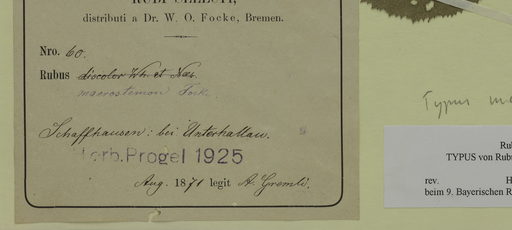 RUBI SELECTI,
distributi a Dr. W. O. Focke, Bremen.
Nro. 60.
Rubus discolor Wh. et Nees.
macrostemon Fock.
Schaffhausen: bei Unterhallau.
Herb. Progel 1925
Aug. 1871 legit A. Gremli.
Typus
TYPUS von Rub
rev. H
beim 9. Bayerischen R